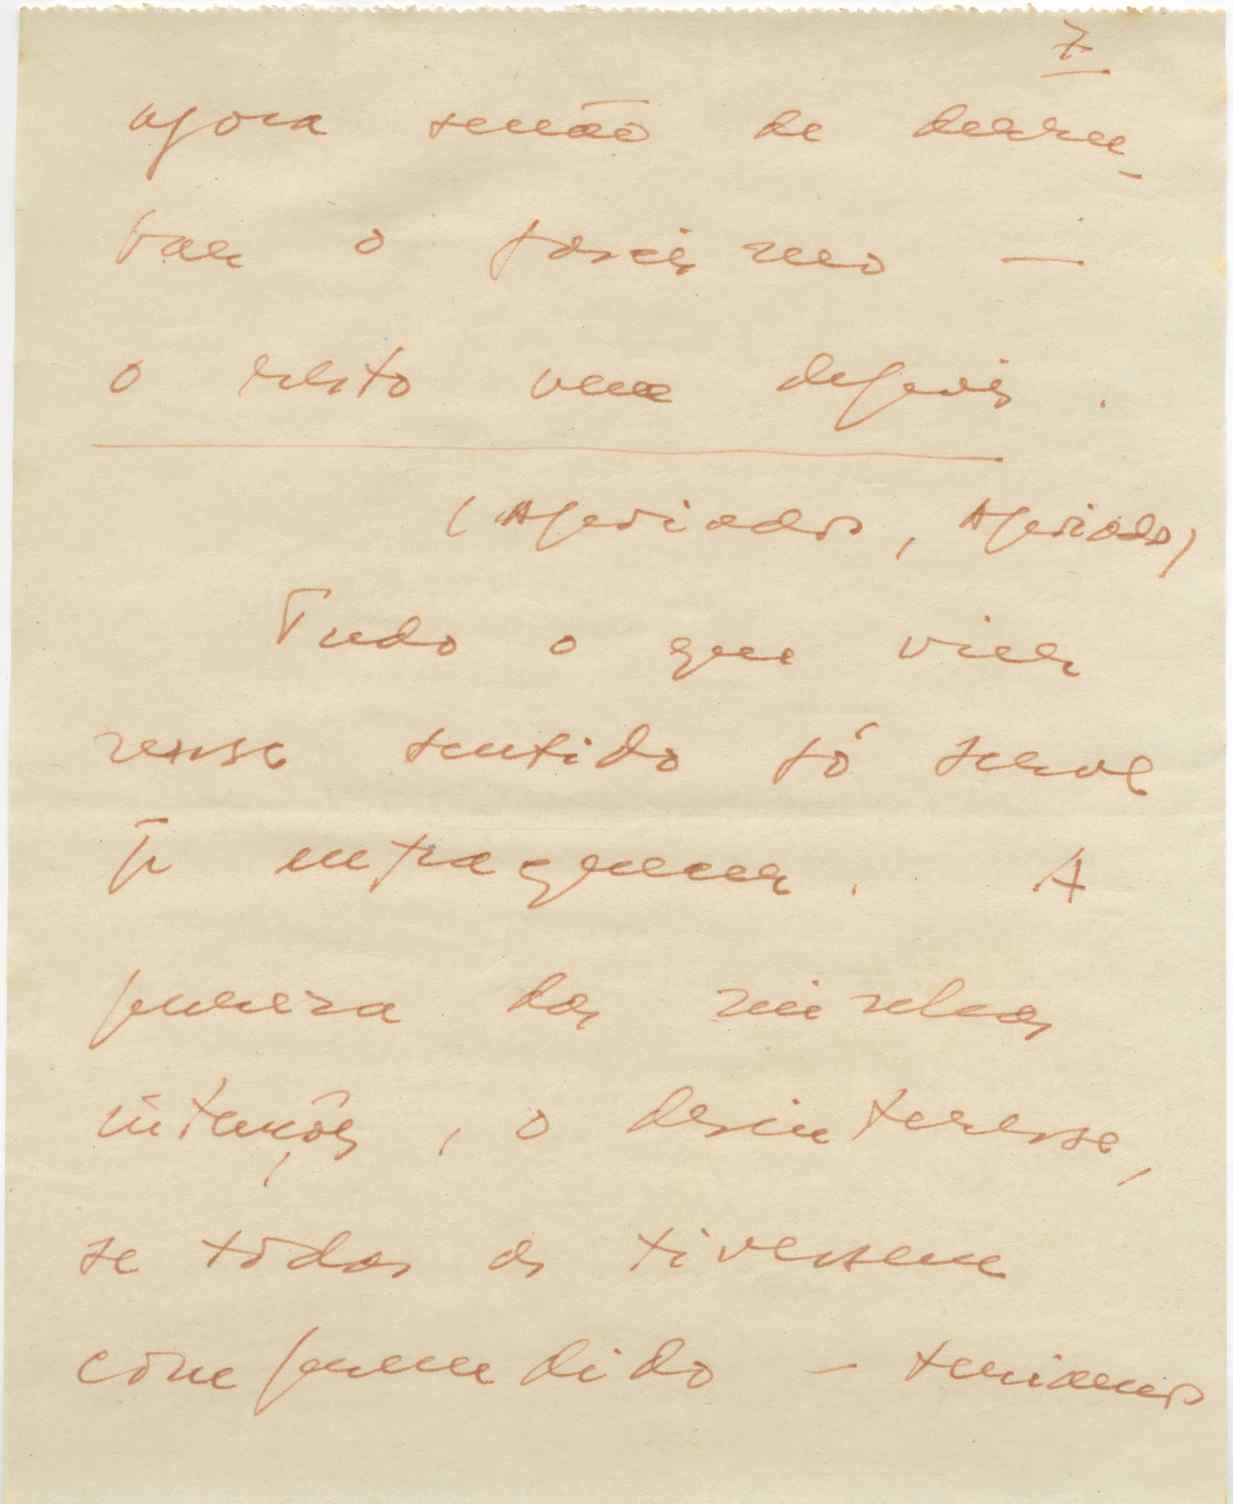 7
agora senão de derru-
bar o fascismo —
o resto vem depois.
(Apoiados, Apoiados)
Tudo o que vier
nesse sentido só serve
pª enfraquecer. A
pureza das minhas
intenções, o desinteresse,
se todos os tivessem
compreendido — teriamos